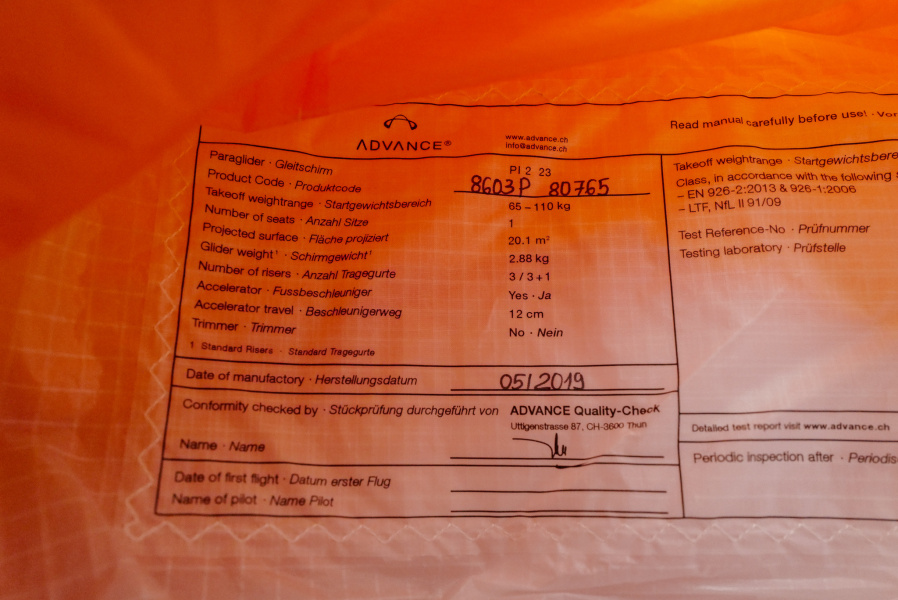 ADVANCE®
www.advance.ch
info@advance.ch
Paraglider · Gleitschirm PI 2 23
Product Code · Produktcode 8603P 80765
Takeoff weightrange · Startgewichtsbereich 65 – 110 kg
Number of seats · Anzahl Sitze 1
Projected surface · Fläche projiziert 20.1 m²
Glider weight¹ · Schirmgewicht¹ 2.88 kg
Number of risers · Anzahl Tragegurte 3 / 3 + 1
Accelerator · Fussbeschleuniger Yes · Ja
Accelerator travel · Beschleunigerweg 12 cm
Trimmer · Trimmer No · Nein
1 Standard Risers · Standard Tragegurte
Date of manufactory · Herstellungsdatum 05/2019
Conformity checked by · Stückprüfung durchgeführt von ADVANCE Quality-Check
Uttigenstrasse 87, CH-3600 Thun
Name · Name
Date of first flight · Datum erster Flug
Name of pilot · Name Pilot
Read manual carefully before use! ·
Takeoff weightrange ·
Class, in accordance with the following
– EN 926-2:2013 & 926-1:2006
– LTF, NfL II 91/09
Test Reference-No · Prüfnummer
Testing laboratory · Prüfstelle
Detailed test report visit www.advance.ch
Periodic inspection after ·